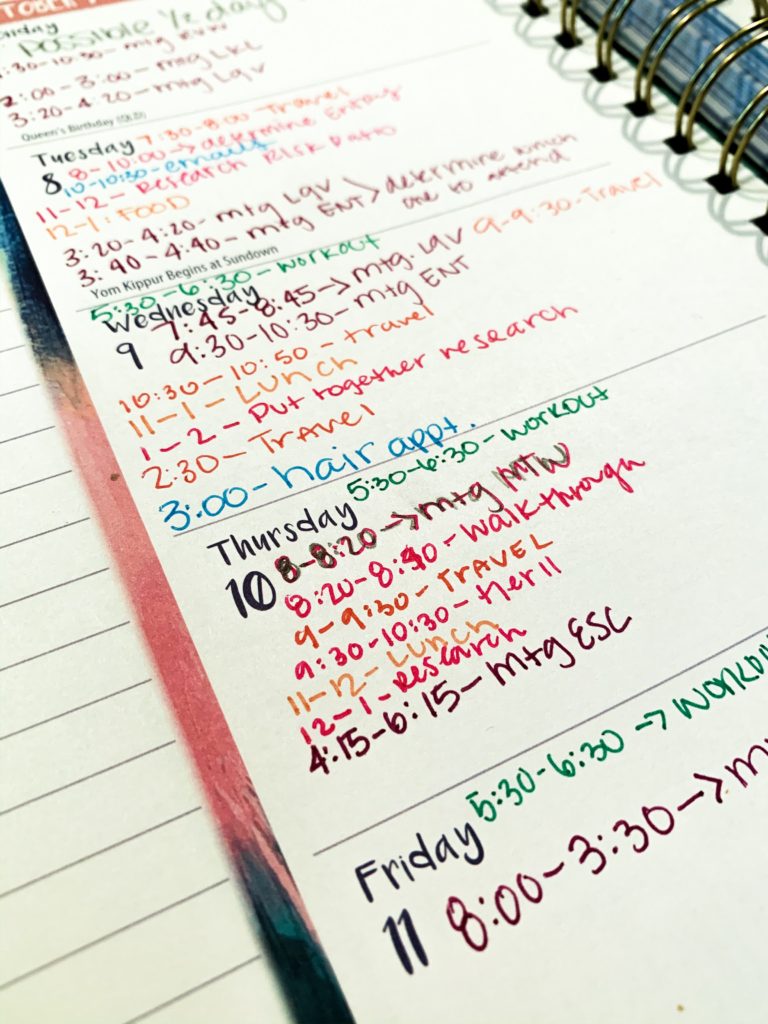 TOBER
nday
Possible 1/2 day
:30-10:30- mtg
2:00 - 3:00 - mtg LKL
3:20-4:20 - mtg Lqv
Queen's Birthday (QLD)
Tuesday 7:30-8:00 - Travel
8 8-10:00 → determine
10-10:30-emails
11-12 - Research Risk Ratio
12-1: FOOD
3:20-4:20- mtg Lqv > determine which
3:40-4:40- mtg ENT one to attend
Yom Kippur Begins at Sundown
5:30-6:30 - workout
Wednesday 7:45-8:45 → mtg. Lqv 9-9:30-Travel
9 9:30-10:30- mtg ENT
10:30-10:50 - travel
11-1 - Lunch
1-2 - Put together research
2:30 - Travel
3:00 - hair appt.
Thursday 5:30-6:30 - workout
10 8-8:20 → mtg MTW
8:20-8:40 - walkthrough
9-9:30 - TRAVEL
9:30-10:30 - tier II
11-12 - Lunch
12-1 - Research
4:15-6:15 - mtg ESC
5:30-6:30 →
Friday
11 8:00-3:30 →